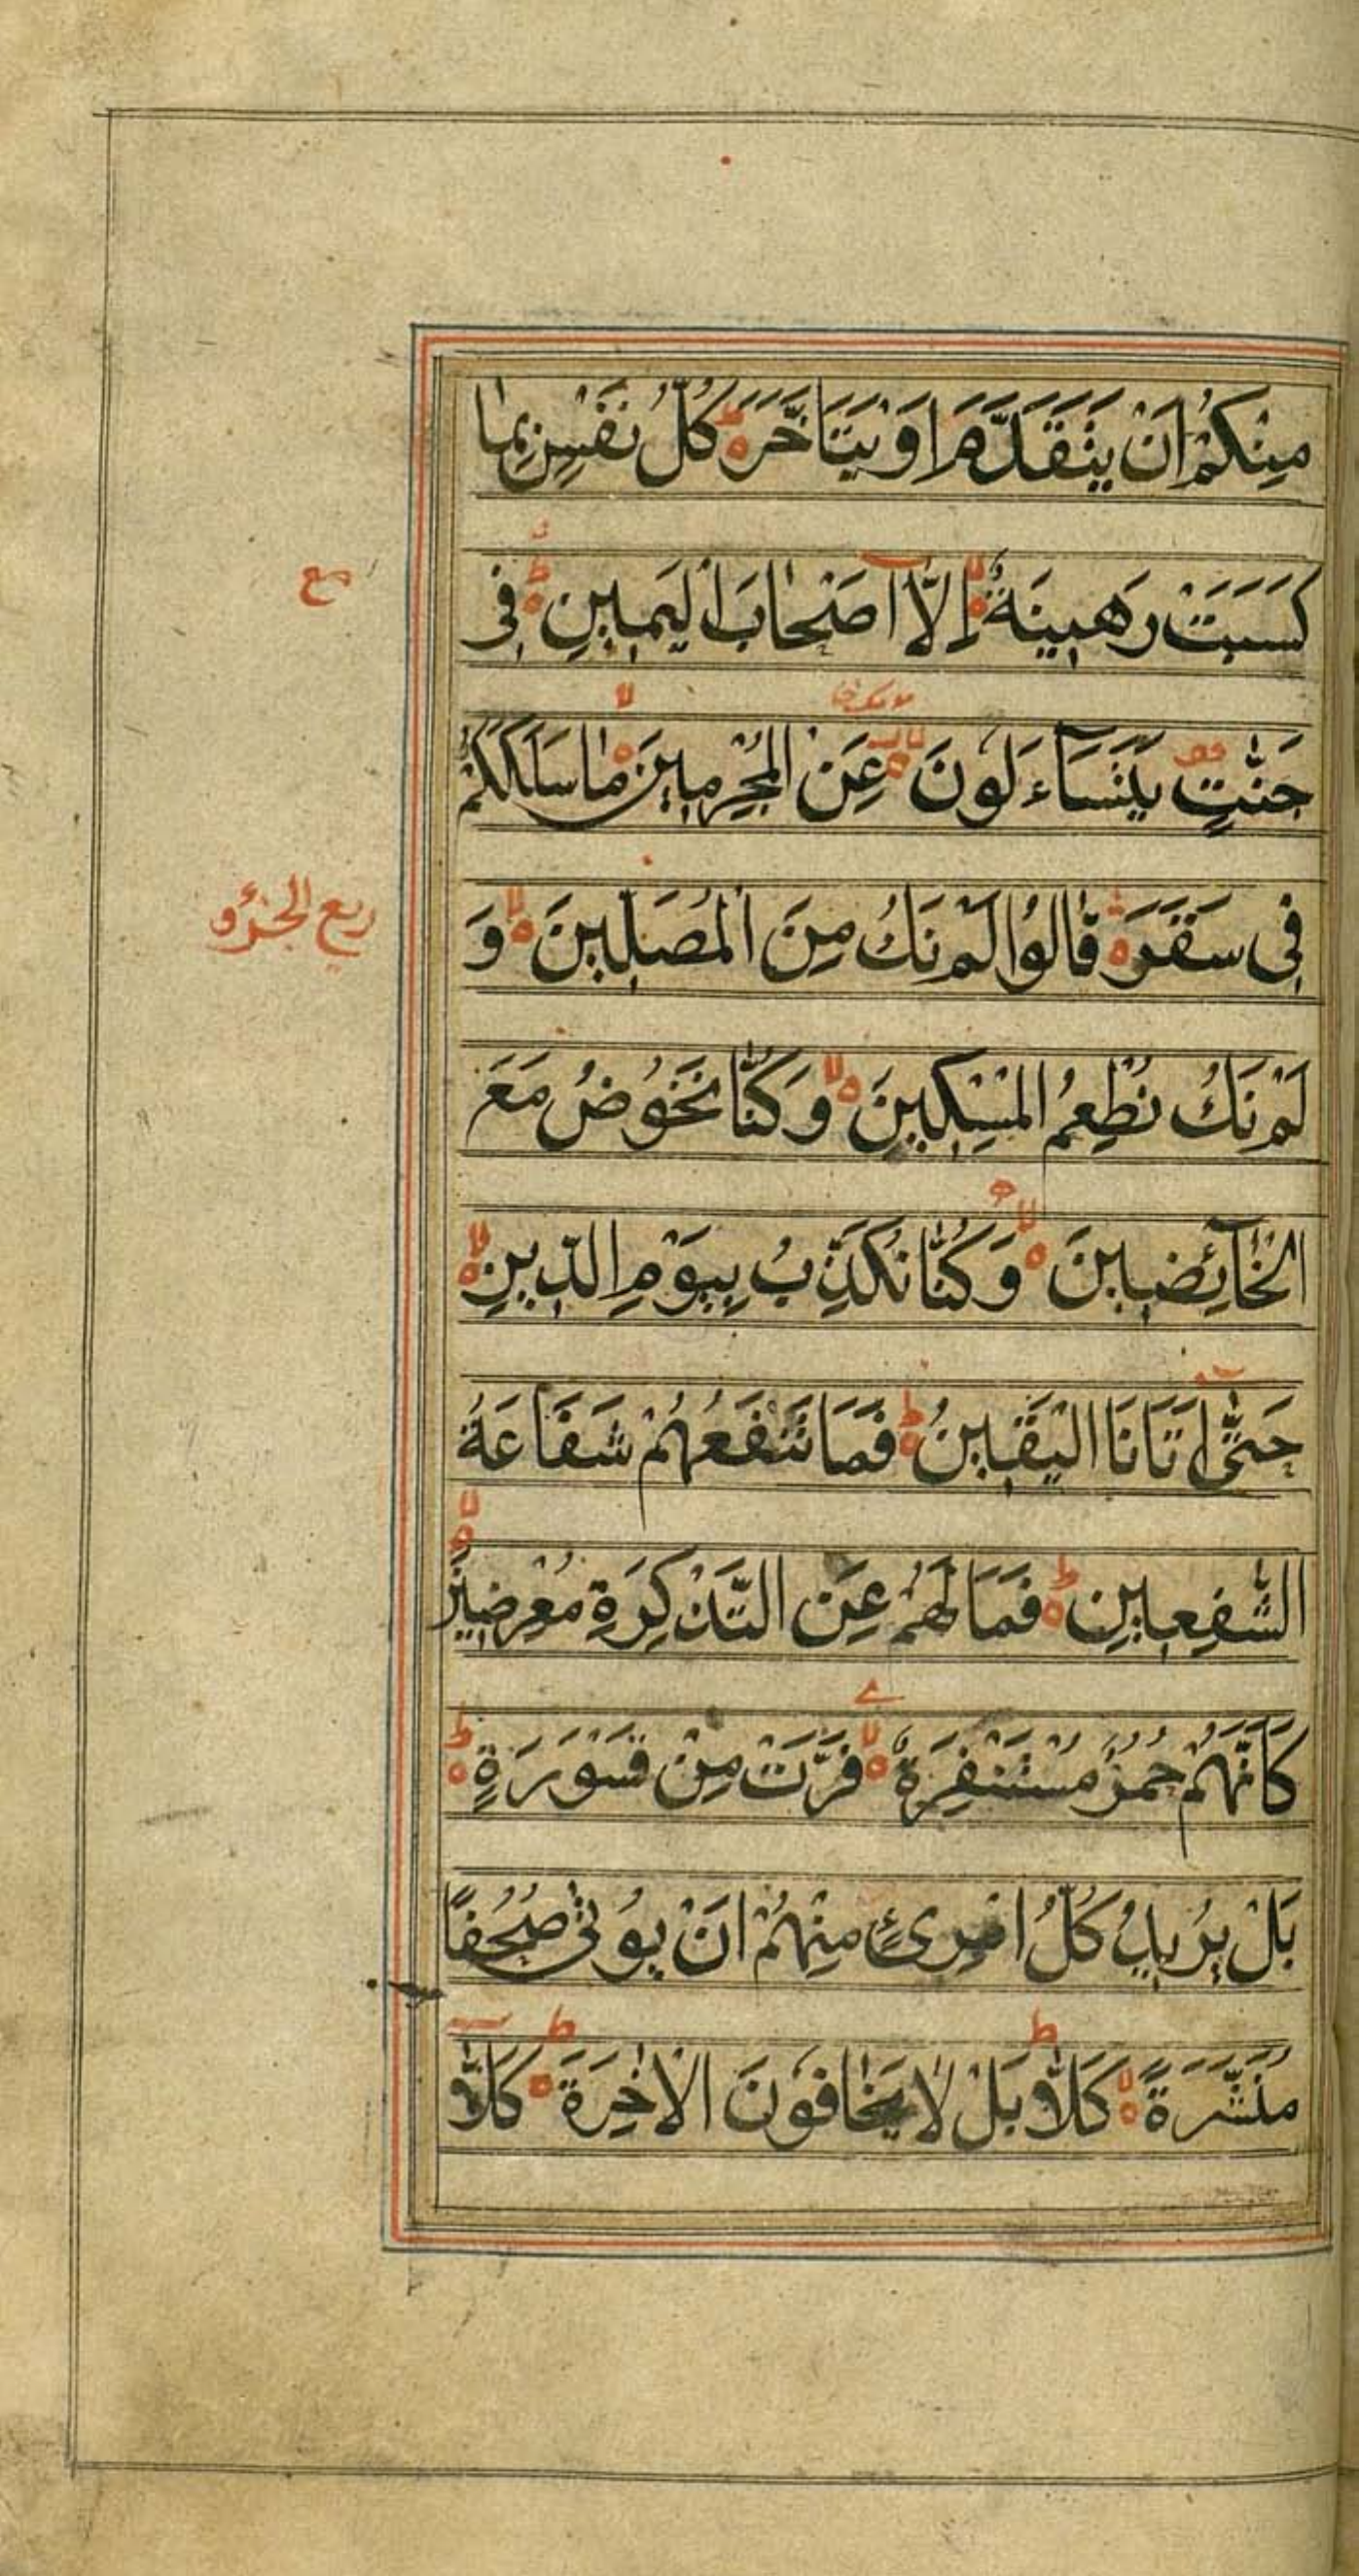 مِنْكُمْ اَنْ يَتَقَدَّمَ اَوْ يَتَاَخَّرَ ۃ ط كُلُّ نَفْسٍ بِمٰا
كَسَبَتْ رَهِينَةٌ ۃ لا اِلَّآ اَصْحٰابَ الْيَمِينِ ۃ ط فِى
مع
جَنّٰتٍ يَتَسَآءَلُونَ عَنِ الْمُجْرِمِينَ ۃ لا مٰا سَلَكَكُمْ
فِى سَقَرَ ۃ قٰالُوْا لَمْ نَكُ مِنَ الْمُصَلِّينَ ۃ لا وَ
ربع الجزؤ
لَمْ نَكُ نُطْعِمُ الْمِسْكِينَ ۃ لا وَكُنّٰا نَخُوْضُ مَعَ
الْخٰآئِضِينَ ۃ لا وَكُنّٰا نُكَذِّبُ بِيَوْمِ الدِّينِ ۃ لا
حَتّٰى اَتَانَا الْيَقِينُ ۃ ط فَمَا تَنْفَعُهُمْ شَفَاعَةُ
الشّٰفِعِينَ ۃ ط فَمَا لَهُمْ عَنِ التَّذْكِرَةِ مُعْرِضِينَ ۃ لا
كَاَنَّهُمْ حُمُرٌ مُسْتَنْفِرَةٌ ۃ لا فَرَّتْ مِنْ قَسْوَرَةٍ ۃ ط
بَلْ يُرِيدُ كُلُّ امْرِئٍ مِنْهُمْ اَنْ يُوْتٰى صُحُفًا
مُنَشَّرَةً ۃ لا كَلّٰا ط بَلْ لٰا يَخٰافُوْنَ الْاٰخِرَةَ ۃ ط كَلّٰا